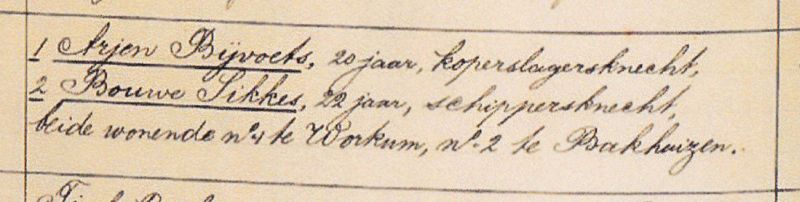 1 Arjen Bijvoets, 20 jaar, koperslagersknecht,
2 Bouwe Sikkes, 22 jaar, schippersknecht,
beide wonende no. 1 te Workum, no. 2 te Bakhuizen.